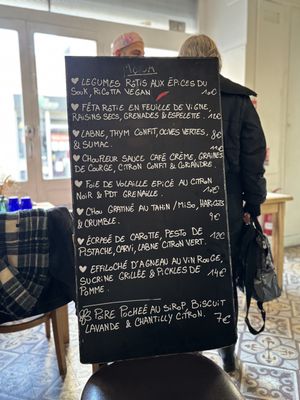 LEGUMES ROTIS AUX EPICES DU
SOUK, RICOTTA VEGAN 10€
FÊTA ROTIE EN FEUILLE DE VIGNE,
RAISINS SECS, GRENADES & ESPELETTE. 10€
LABNE, THYM CONFIT, OLIVES VERTES, 8€
& SUMAC.
CHOUFLEUR SAUCE CAFÉ CRÈME, GRAINES
DE COURGE, CITRON CONFIT & CORIANDRE 11€
FOIE DE VOLAILLE EPICÉ AU CITRON
NOIR & PDT GRENAILLE. 12€
CHOU GRATINÉ AU TAHIN / MISO, HARICOTS
& CRUMBLE. 9€
ECRASÉ DE CAROTTE, PESTO DE 12€
PISTACHE, CARVI, LABNE CITRON VERT.
EFFILOCHÉ D'AGNEAU AU VIN ROUGE,
SUCRINE GRILLÉE & PICKLES DE 14€
POMME.
POIRE POCHEÉ AU SIROP, BISCUIT
LAVANDE & CHANTILLY CITRON. 7€